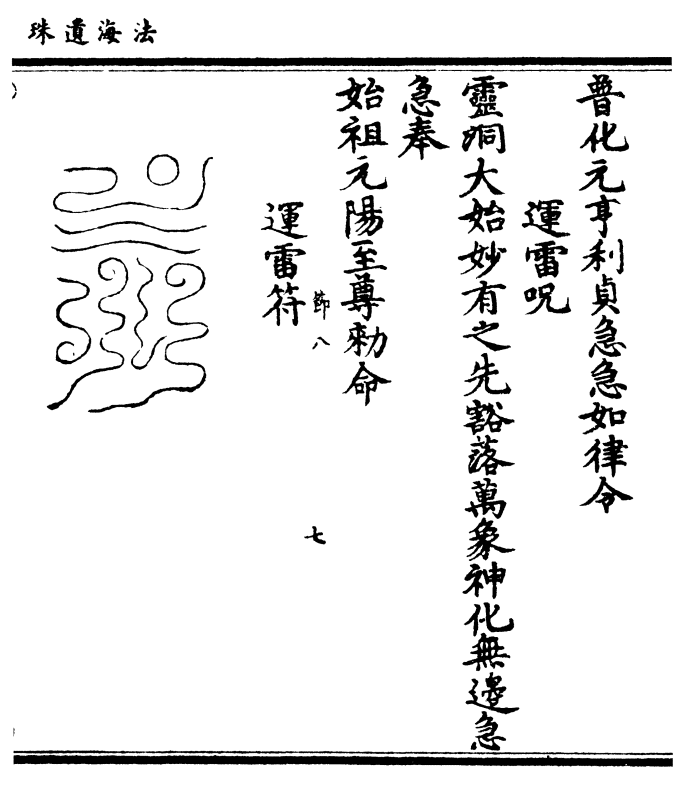 法海遺珠
普化元亨利貞急急如律令
運雷呪
靈洞大始妙有之先豁落萬象神化無邊急
急奉
始祖元陽至尊勑命
節八
七
運雷符